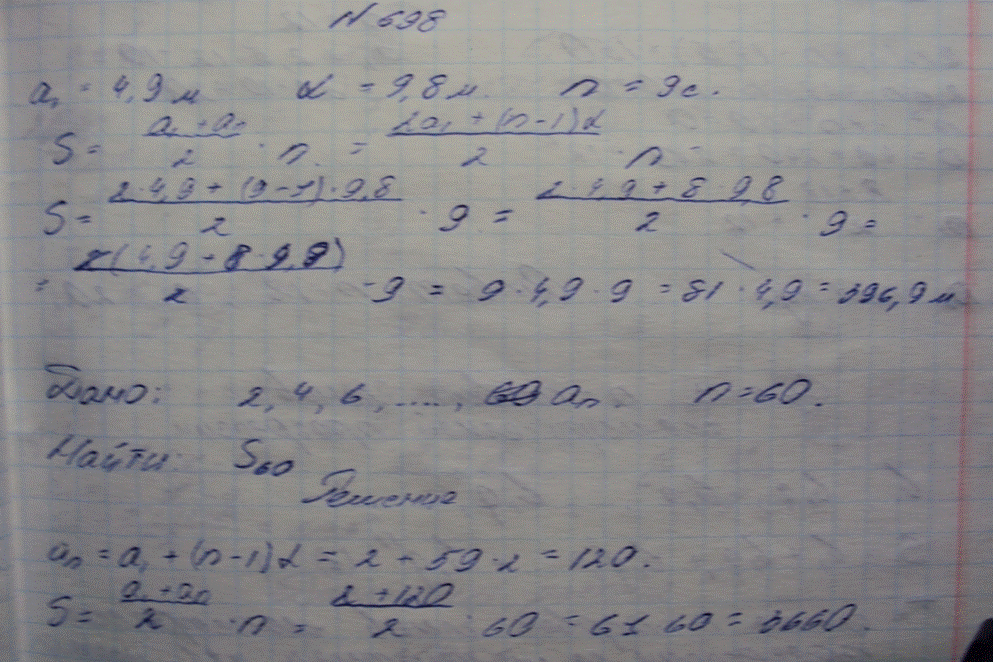 N 698
a₁ = 4,9 м d = 9,8 м. n = 9 с.
S = (a₁ + aₙ)/2 · n = (2a₁ + (n-1)d)/2 · n
S = (2·4,9 + (9-1)·9,8)/2 · 9 = (2·4,9 + 8·9,8)/2 · 9 =
= 2(4,9 + 8·4,9)/2 · 9 = 9·4,9·9 = 81·4,9 = 396,9 м
Дано: 2, 4, 6, ...., aₙ. n = 60.
Найти: S₆₀
Решение
aₙ = a₁ + (n-1)d = 2 + 59·2 = 120.
S = (a₁ + aₙ)/2 · n = (2 + 120)/2 · 60 = 61 60 = 3660.